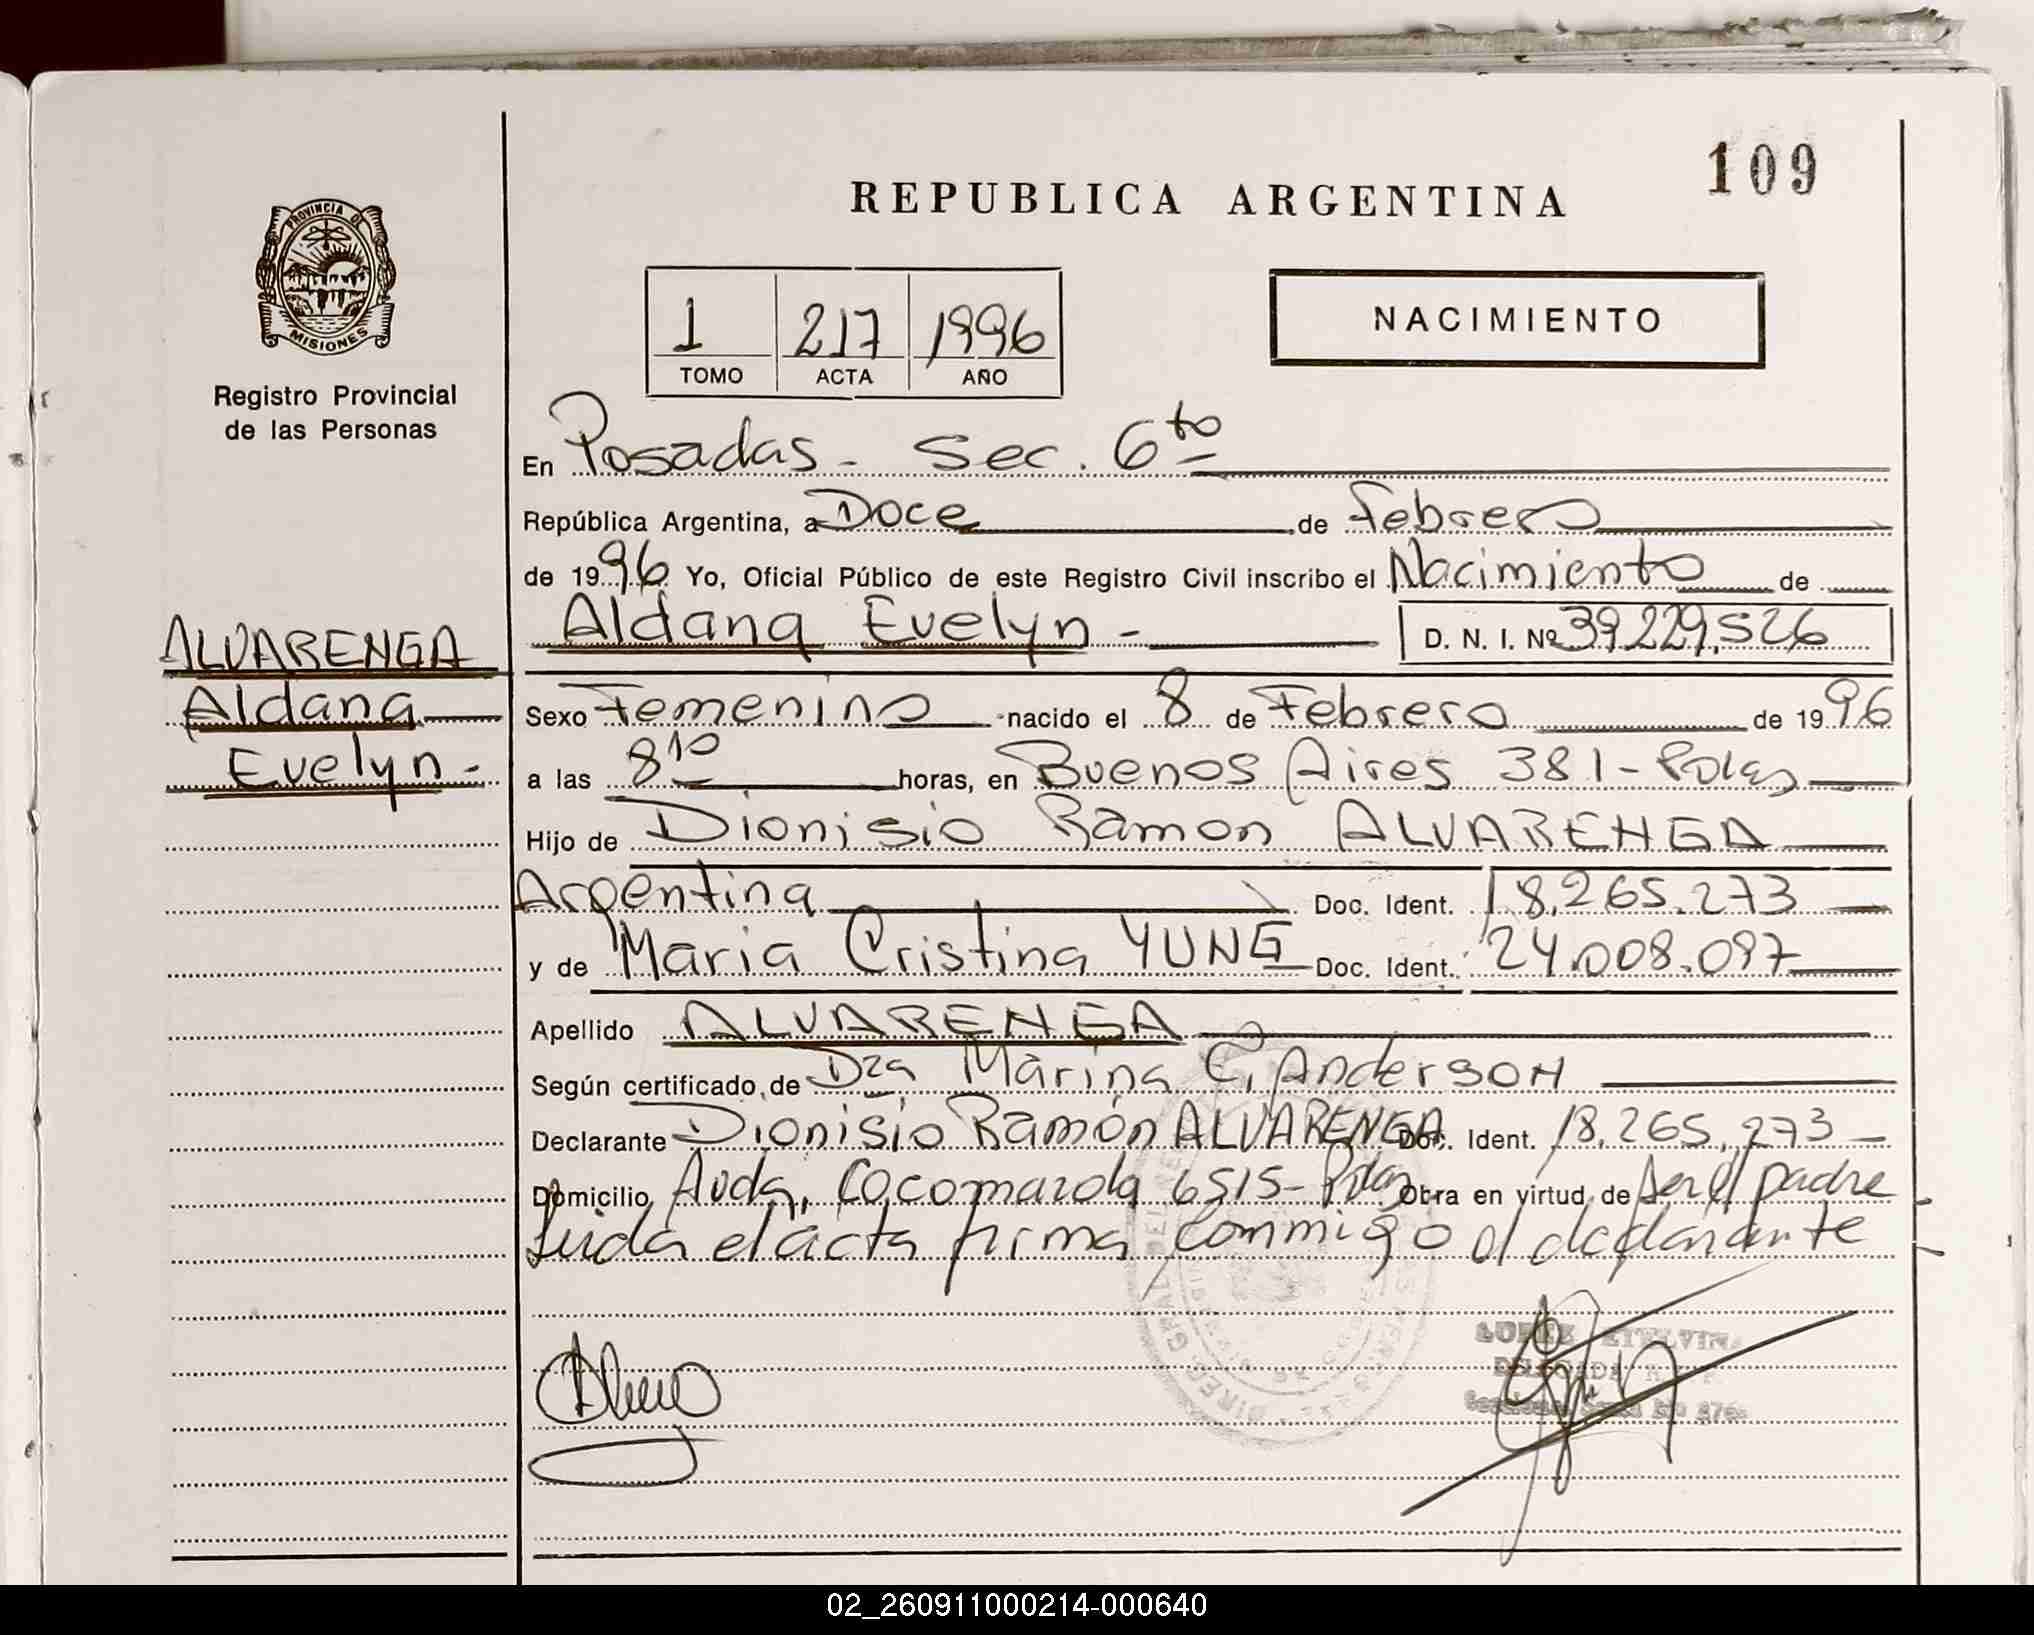 109
REPUBLICA ARGENTINA
PROVINCIA DE
MISIONES
Registro Provincial
de las Personas
1 217 1996
TOMO ACTA AÑO
NACIMIENTO
En Posadas - Sec. 6to
República Argentina, a Doce de Febrero
de 1996 Yo, Oficial Público de este Registro Civil inscribo el Nacimiento de
Aldana Evelyn - D. N. I. Nº 39.229.526
ALVARENGA
Aldana
Evelyn -
Sexo Femenino nacido el 8 de Febrero de 1996
a las 8 10 horas, en Buenos Aires 381 - Pdas
Hijo de Dionisio Ramon ALVARENGA
Argentina Doc. Ident. 18.265.273
y de Maria Cristina YUNG Doc. Ident. 24.008.097
Apellido ALVARENGA
Según certificado, de Dra Marina C. Anderson
Declarante Dionisio Ramón ALVARENGA Doc. Ident. 18.265.273
Domicilio Avda. Cocomarola 6515 - Pdas Obra en virtud, de ser el padre
Leida el acta firma conmigo el declarante
02_260911000214-000640